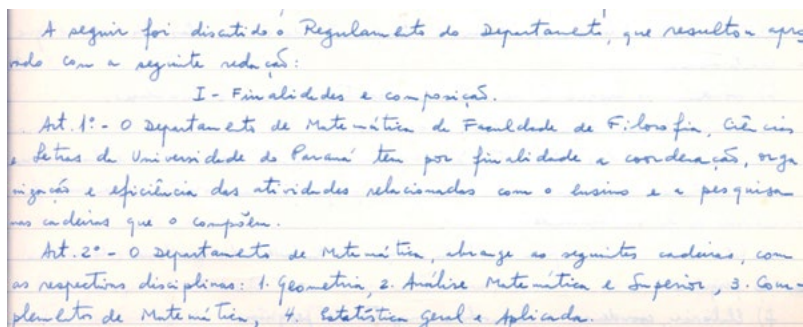 A seguir foi discutido o Regulamento do Departamento, que resultou apro
vado com a seguinte redação:
I - Finalidades e composição.
Art. 1º - O Departamento de Matemática da Faculdade de Filosofia, Ciências
e Letras da Universidade do Paraná tem por finalidade a coordenação, orga
nização e eficiência das atividades relacionadas com o ensino e a pesquisa
nas cadeiras que o compõem.
Art. 2º - O Departamento de Matemática, abrange as seguintes cadeiras, com
as respectivas disciplinas: 1. Geometria, 2. Análise Matemática e Superior, 3. Com-
plementos de Matemática, 4. Estatística Geral e Aplicada.